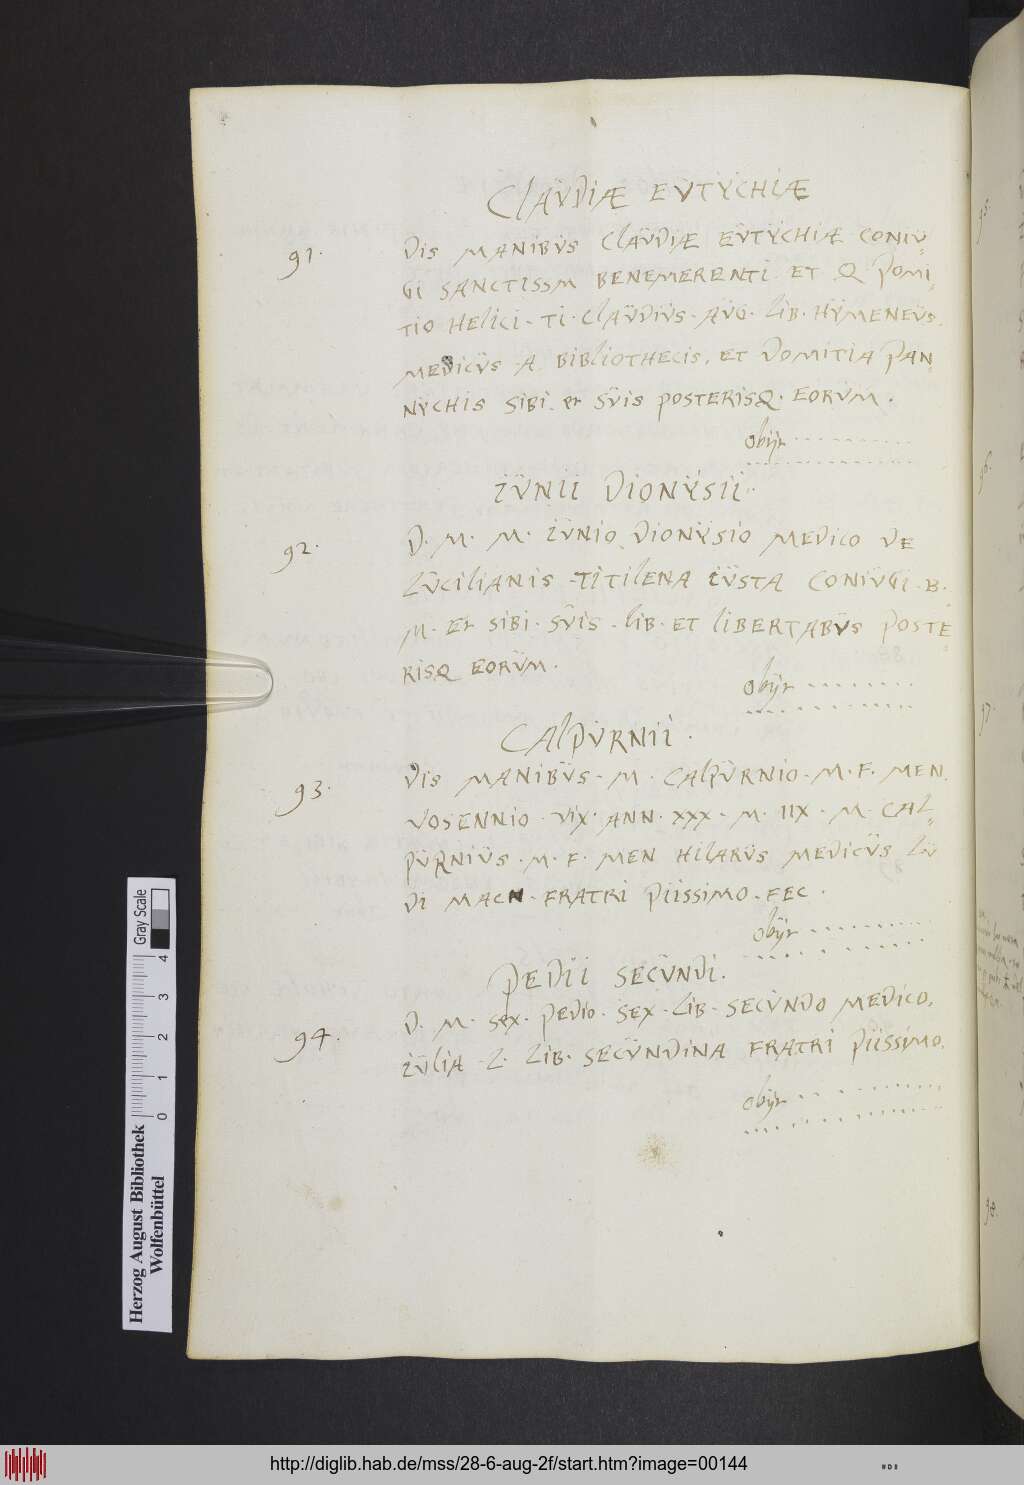 CLAUDIÆ EUTYCHIÆ
91. DIS MANIBUS CLAUDIÆ EUTYCHIÆ CONIU=
GI SANCTISSM BENEMERENTI. ET Q. DOMI=
TIO HELICI. TI. CLAUDIUS. AUG. LIB. HYMENEUS.
MEDICUS. A. BIBLIOTHECIS. ET DOMITIA PAN=
NYCHIS SIBI. et SUIS POSTERISQ. EORUM.
obijt
IUNII DIONYSII
92. D. M. M. IUNIO DIONYSIO MEDICO DE
LUCILIANIS TITILENA IUSTA CONIUGI. B.
M. Et SIBI. SUIS. LIB. ET LIBERTABUS POSTE=
RISQ EORUM.
obijt
CALPURNII.
93. DIS MANIBUS. M. CALPURNIO. M. F. MEN.
VOSENNIO. VIX. ANN. XXX. M. IIX. M. CAL=
PURNIUS. M. F. MEN HILARUS MEDICUS LU
DI MACN. FRATRI PIISSIMO. FEC.
obijt
PEDII SECUNDI.
94. D. M. SEX. PEDIO. SEX. LIB. SECUNDO MEDICO.
IULIA. L. LIB. SECUNDINA FRATRI PIISSIMO.
obijt
95.
96.
97.
98.
Gray Scale
0 1 2 3 4
Herzog August Bibliothek
Wolfenbüttel
http://diglib.hab.de/mss/28-6-aug-2f/start.htm?image=00144